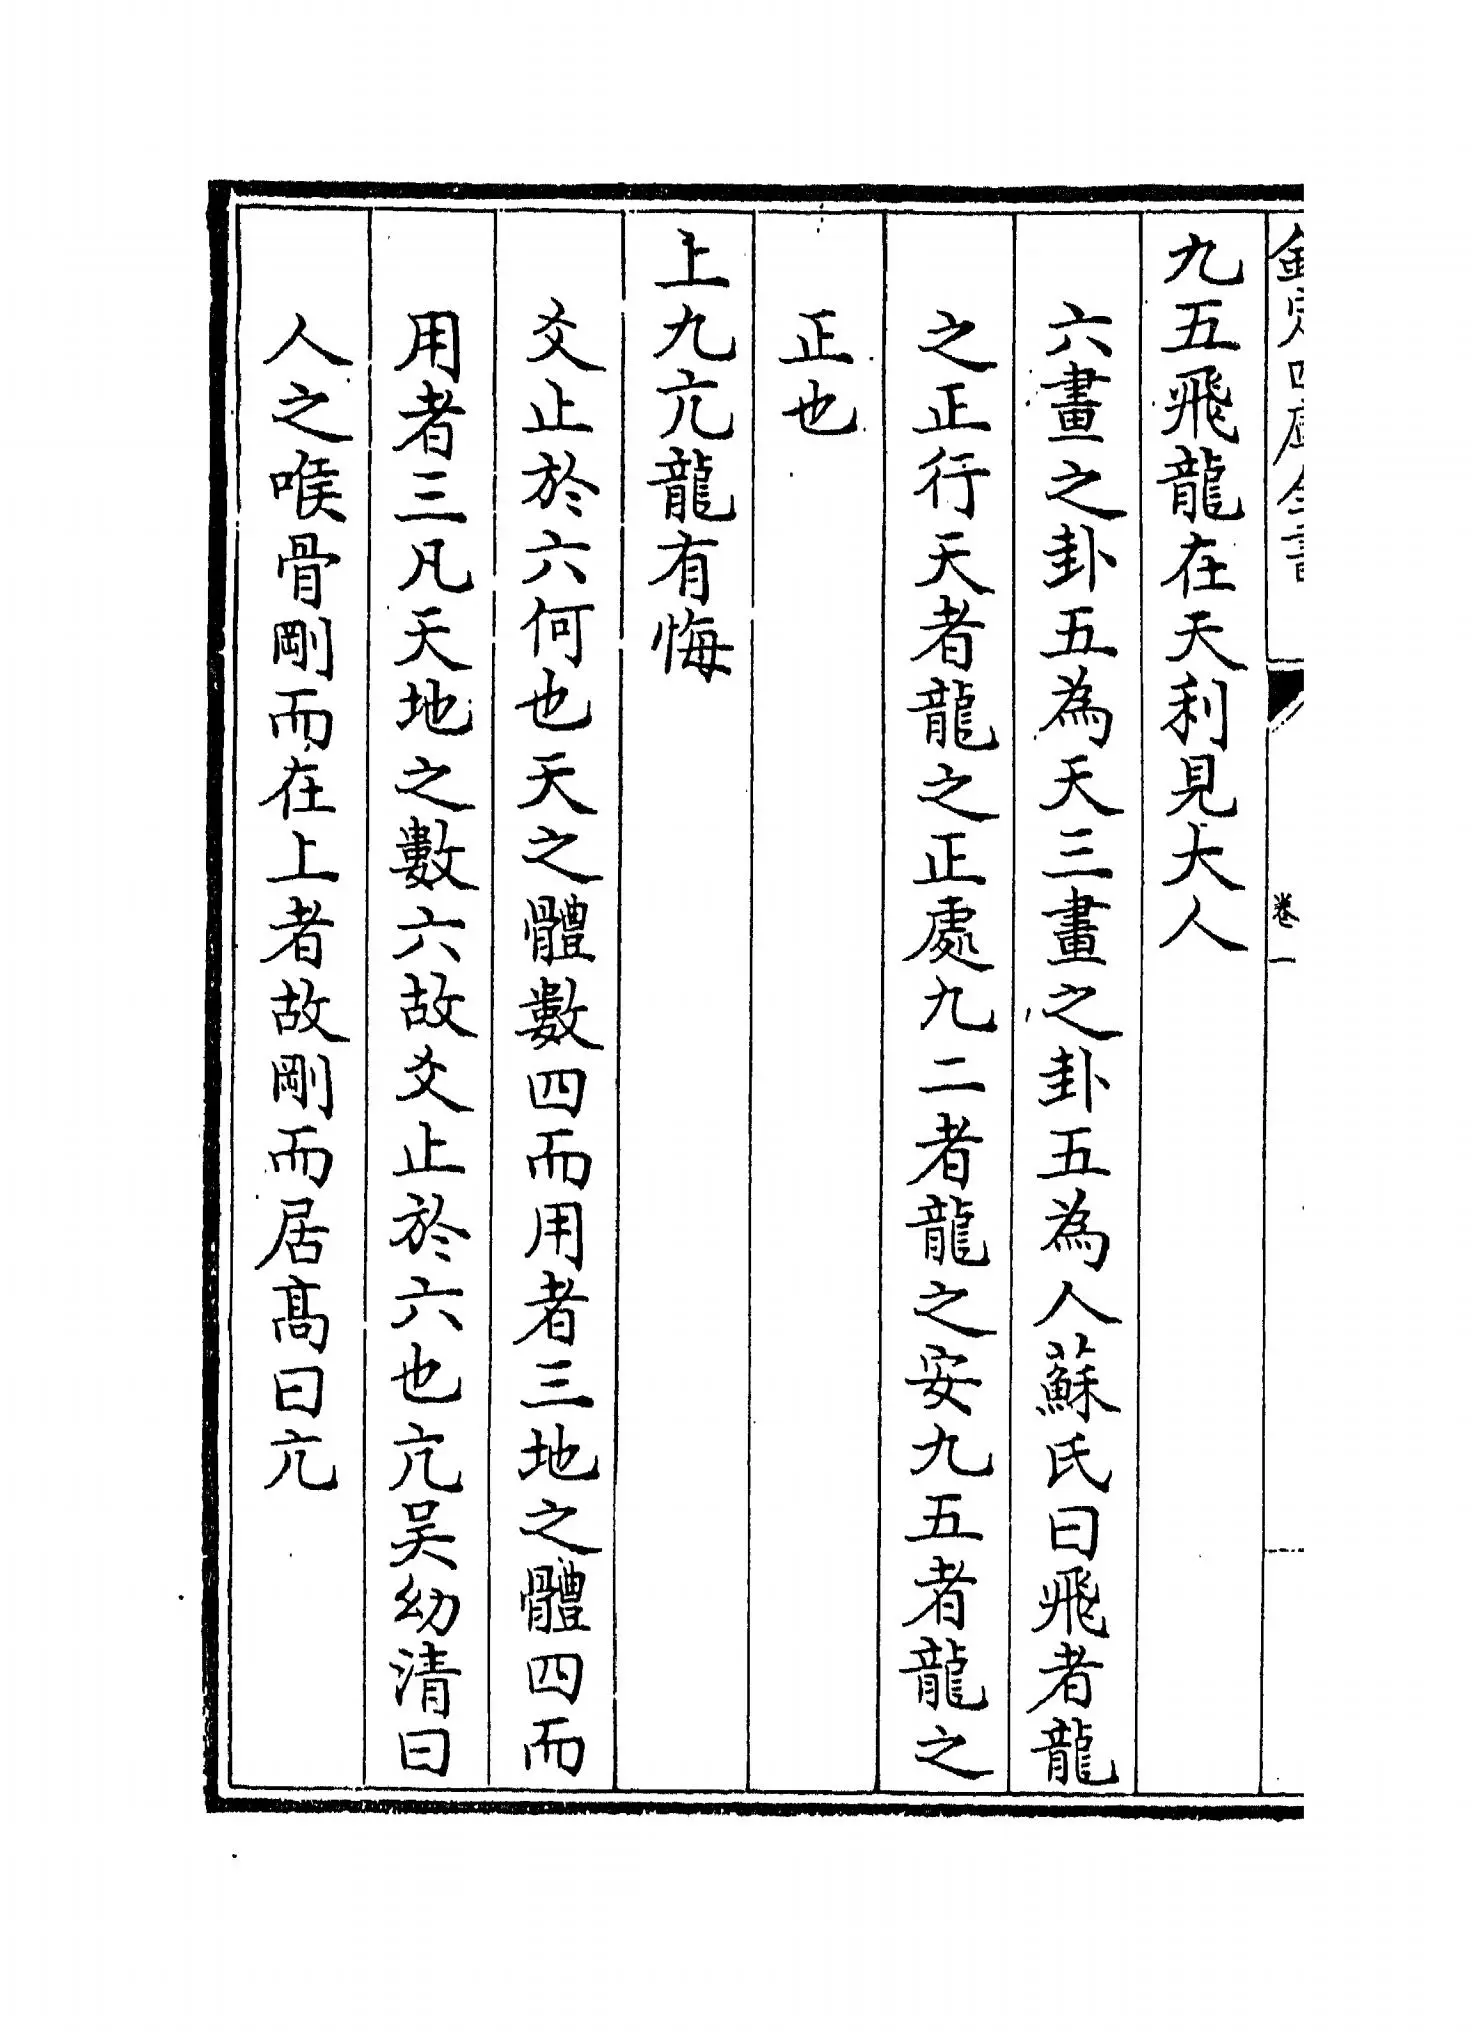 欽定四庫全書
卷一
九五飛龍在天利見大人
六畫之卦五為天三畫之卦五為人蘇氏曰飛者龍
之正行天者龍之正處九二者龍之安九五者龍之
正也
上九亢龍有悔
爻止於六何也天之體數四而用者三地之體四而
用者三凡天地之數六故爻止於六也亢吴幼清曰
人之喉骨剛而在上者故剛而居髙曰亢